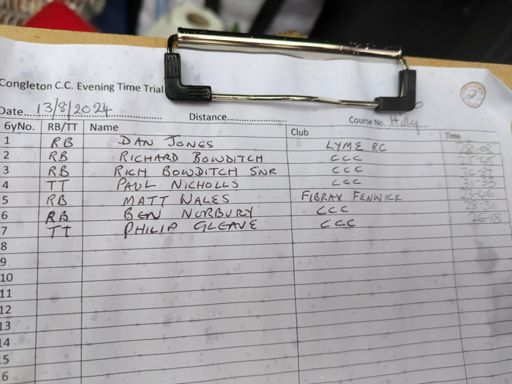 Congleton C.C. Evening Time Trial
Date 13/8/2024 Distance Course No. Hilly
No. RB/TT Name Club Time
1 RB DAN JONES LYME RC
2 RB RICHARD BOWDITCH CCC
3 RB RICH BOWDITCH SNR CCC
4 TT PAUL NICHOLLS CCC
5 RB MATT WALES FIBRAX FENWICK
6 RB BEN NORBURY CCC
7 TT PHILIP GLEAVE CCC 26-18
8
9
10
11
12
13
14
15